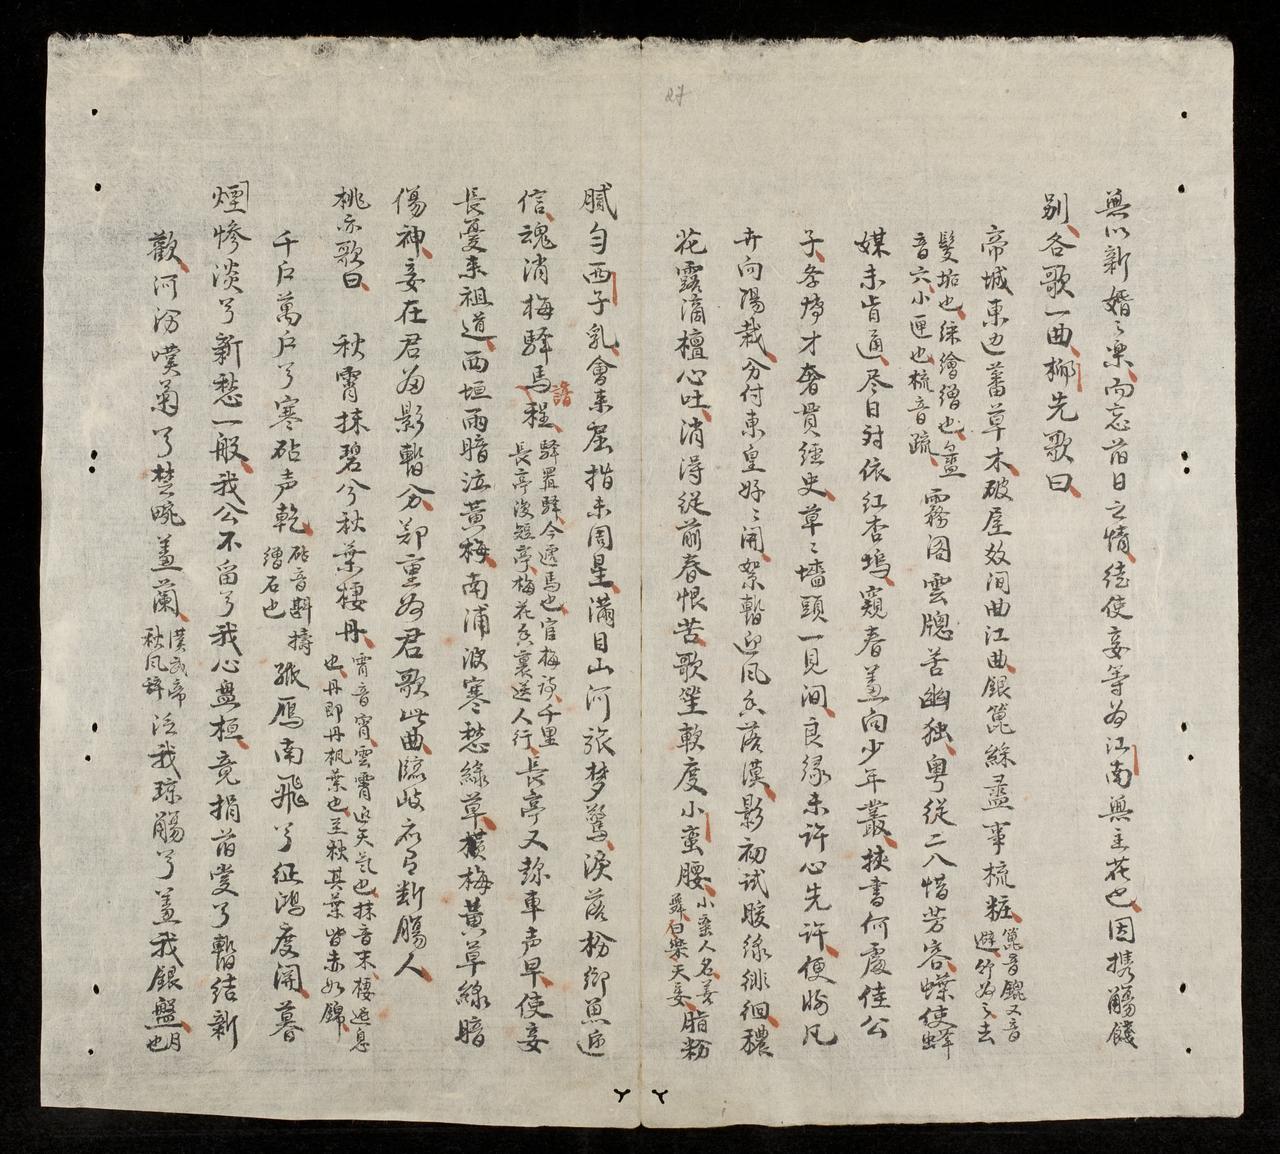 27
無以新婚之樂、而忘前日之情、徒使妾等為江南無主花也、因携觴餞
別、各歌一曲、柳先歌曰、
帝城東边蕃草木、破屋数间曲江曲、銀篦絲盝事梳粧、
髮垢也、綵繪繒也、盝
音六、小匣也、梳音疏、
霧阁雲牕苦幽独、粤從二八惜芳容、蝶使蜂
媒未肯通、尽日对依红杏塢、窺春羞向少年叢、挾書何處佳公
子、年才奢貫經史、草々墻頭一見间、良缘未许心先许、便將凡
卉向陽栽、分付東皇好々開、絮暫迎风香落漠、影初试暖緣徘徊、穠
花露滴檀心吐、消得從前春恨苦、歌坐軟度小蛮腰、
小蛮人名善
舞、白樂天妾、
脂粉
腻匀西子乳、會来屈指未周星、滿目山河张梦驚、淚落枌鄉魚近
信、魂消梅驿馬程、
驛置驛、今遞馬也、官梅詩、千里
長亭復短亭、梅花香裏送人行、
長亭又聽車声早、使妾
長憂来祖道、西垣雨暗泣黃梅、南浦波寒愁綠草、橫梅黃草綠暗
傷神、妾在君為影暫分、郑重為君歌此曲、臨岐應有断腸人
桃亦歌曰、 秋霄抹碧兮秋葉棲丹、
霄音宵、雲霄近天氣也、抹音末、棲遲息
也、丹即丹枫葉也、至秋其葉皆赤如錦
千户萬户兮寒砧声乾、
砧音斟、擣
繒石也
嘹雁南飛兮征鴻度関、暮
煙惨淡兮新愁一般、我公不留兮我心盘桓、竟捐前愛兮暫结新
歡、河汾噗菊兮楚畹羞蘭、
漢武帝
秋风辞
泛我琼觴兮羞我銀盤、
月
也